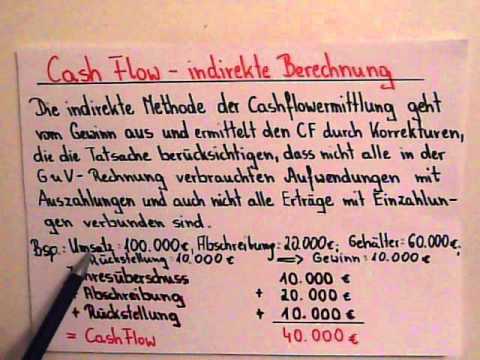 Cash Flow - indirekte Berechnung
Die indirekte Methode der Cashflowermittlung geht
vom Gewinn aus und ermittelt den CF durch Korrekturen,
die die Tatsache berücksichtigen, dass nicht alle in der
GuV-Rechnung verbrauchten Aufwendungen mit
Auszahlungen und auch nicht alle Erträge mit Einzahlun-
gen verbunden sind.
Bsp.: Umsatz = 100.000€, Abschreibung = 20.000€; Gehälter = 60.000€,
Rückstellung = 10.000€ => Gewinn = 10.000€
Jahresüberschuss 10.000 €
+ Abschreibung + 20.000 €
+ Rückstellung + 10.000 €
= CashFlow 40.000 €